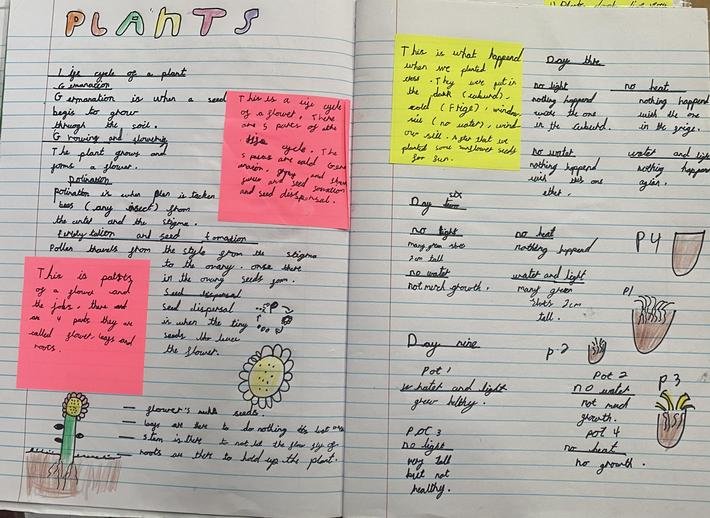 PLANTS
Life cycle of a plant
Germanation
Germanation is when a seed
begin to grower
through the soil.
Growing and flowering
The plant grows and
forms a flower.
Polination
polination is when plen is tacken
bees (any insect) from
the antel and the stigma.
and seed fomation
Pollen travels from the style from the stigma
to the ovary. once there
in the ovary seeds form.
Seed dispersal
Seed dispersal
is when the tiny
seeds the leave
the flower.
This is a life cycle
of a flower. There
are 5 parts of the
life cycle. The
5 parts are cald Germ
anation,
and seed fomation
and seed dispersal.
This is palrts
of a flower and
the jobs, there and
an 4 parts they are
called flower, legs and
roots.
flower's seeds.
are there to do nothing
stem is there to not let the flow
roots are there to hold up the plant.
This is what happend
when we planted
cress. They were put in
the dark (cuburd),
cold (frige), window
sile (no water), wind
ow sill. After that we
planted some sunflower seeds
for fun.
Day thre
no light
nothing happend
with the one
in the cuburd.
no heat
nothing happend
with the one
in the frige.
no water
nothing happend
with this one
ether.
water and light
nothing happend
again.
Day six
no light
many green shots
2cm tall
no heat
nothing happend
no water
not much growth.
water and light
many green
shots 2cm
tall.
P4
P1
Day nine
P.2
P3
Pot 1
water and light
grew helthy.
Pot 2
no water
not much
growth.
Pot 3
no light
very tall
but not
healthy.
pot 4
no heat
no growth.